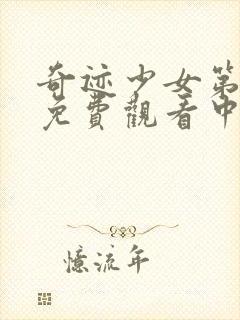 奇迹少女第
免費觀看中
憶流年